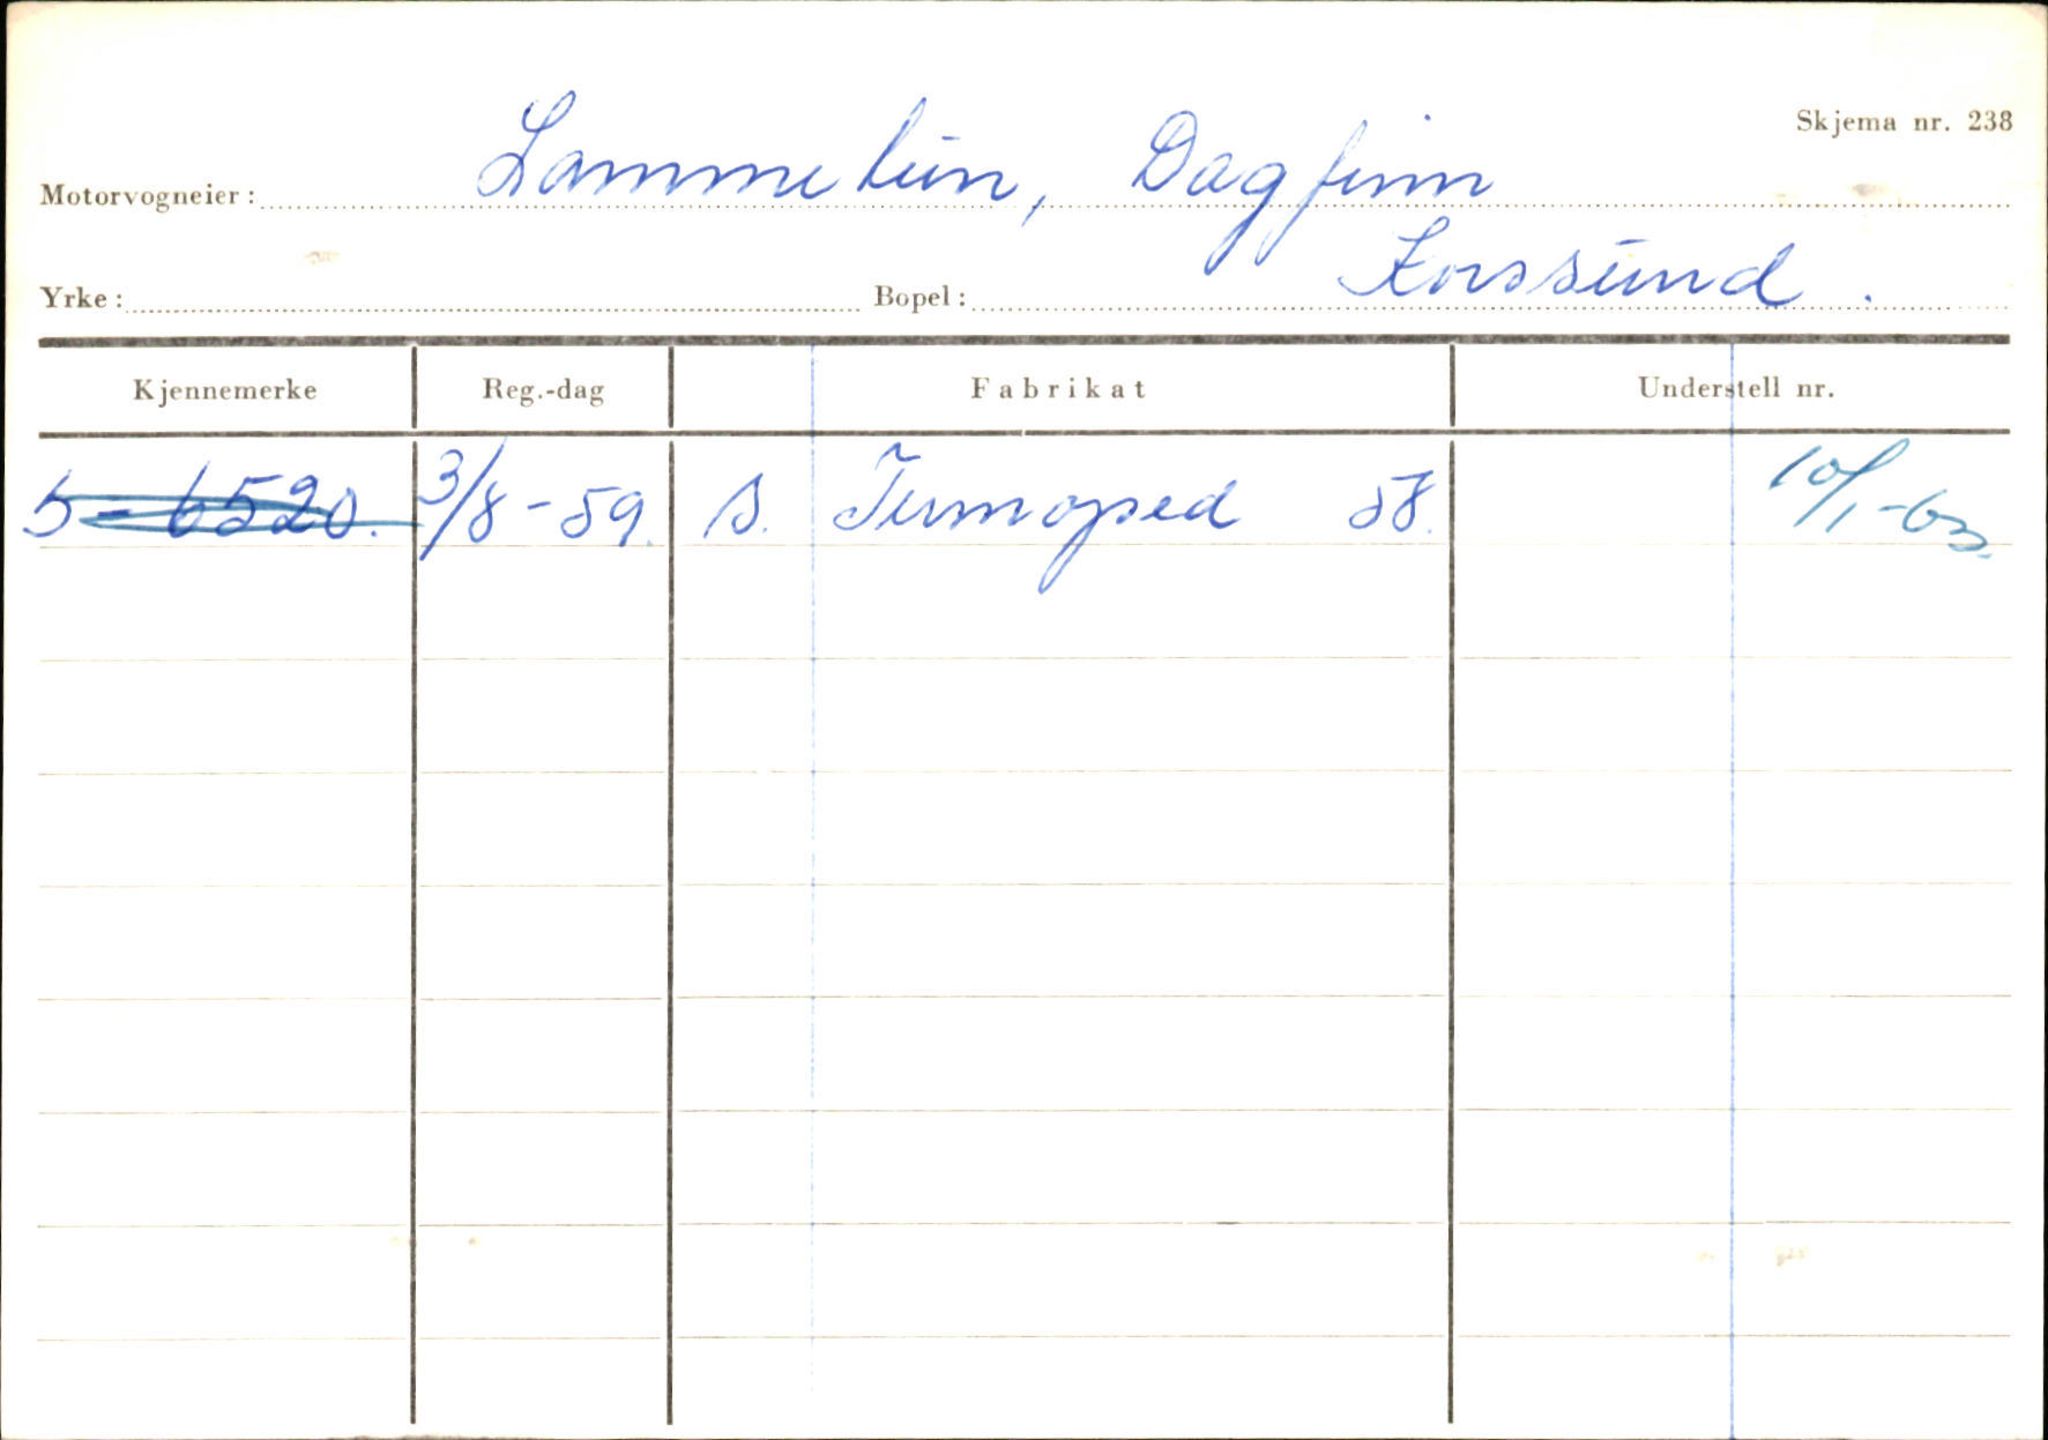 Skjema nr. 238
Motorvogneier: Lammetun, Dagfinn
Yrke: Bopel: Korssund.
Kjennemerke Reg.-dag Fabrikat Understell nr.
S-6520. 3/8-59. S. Termoped 58. 10/1-63.